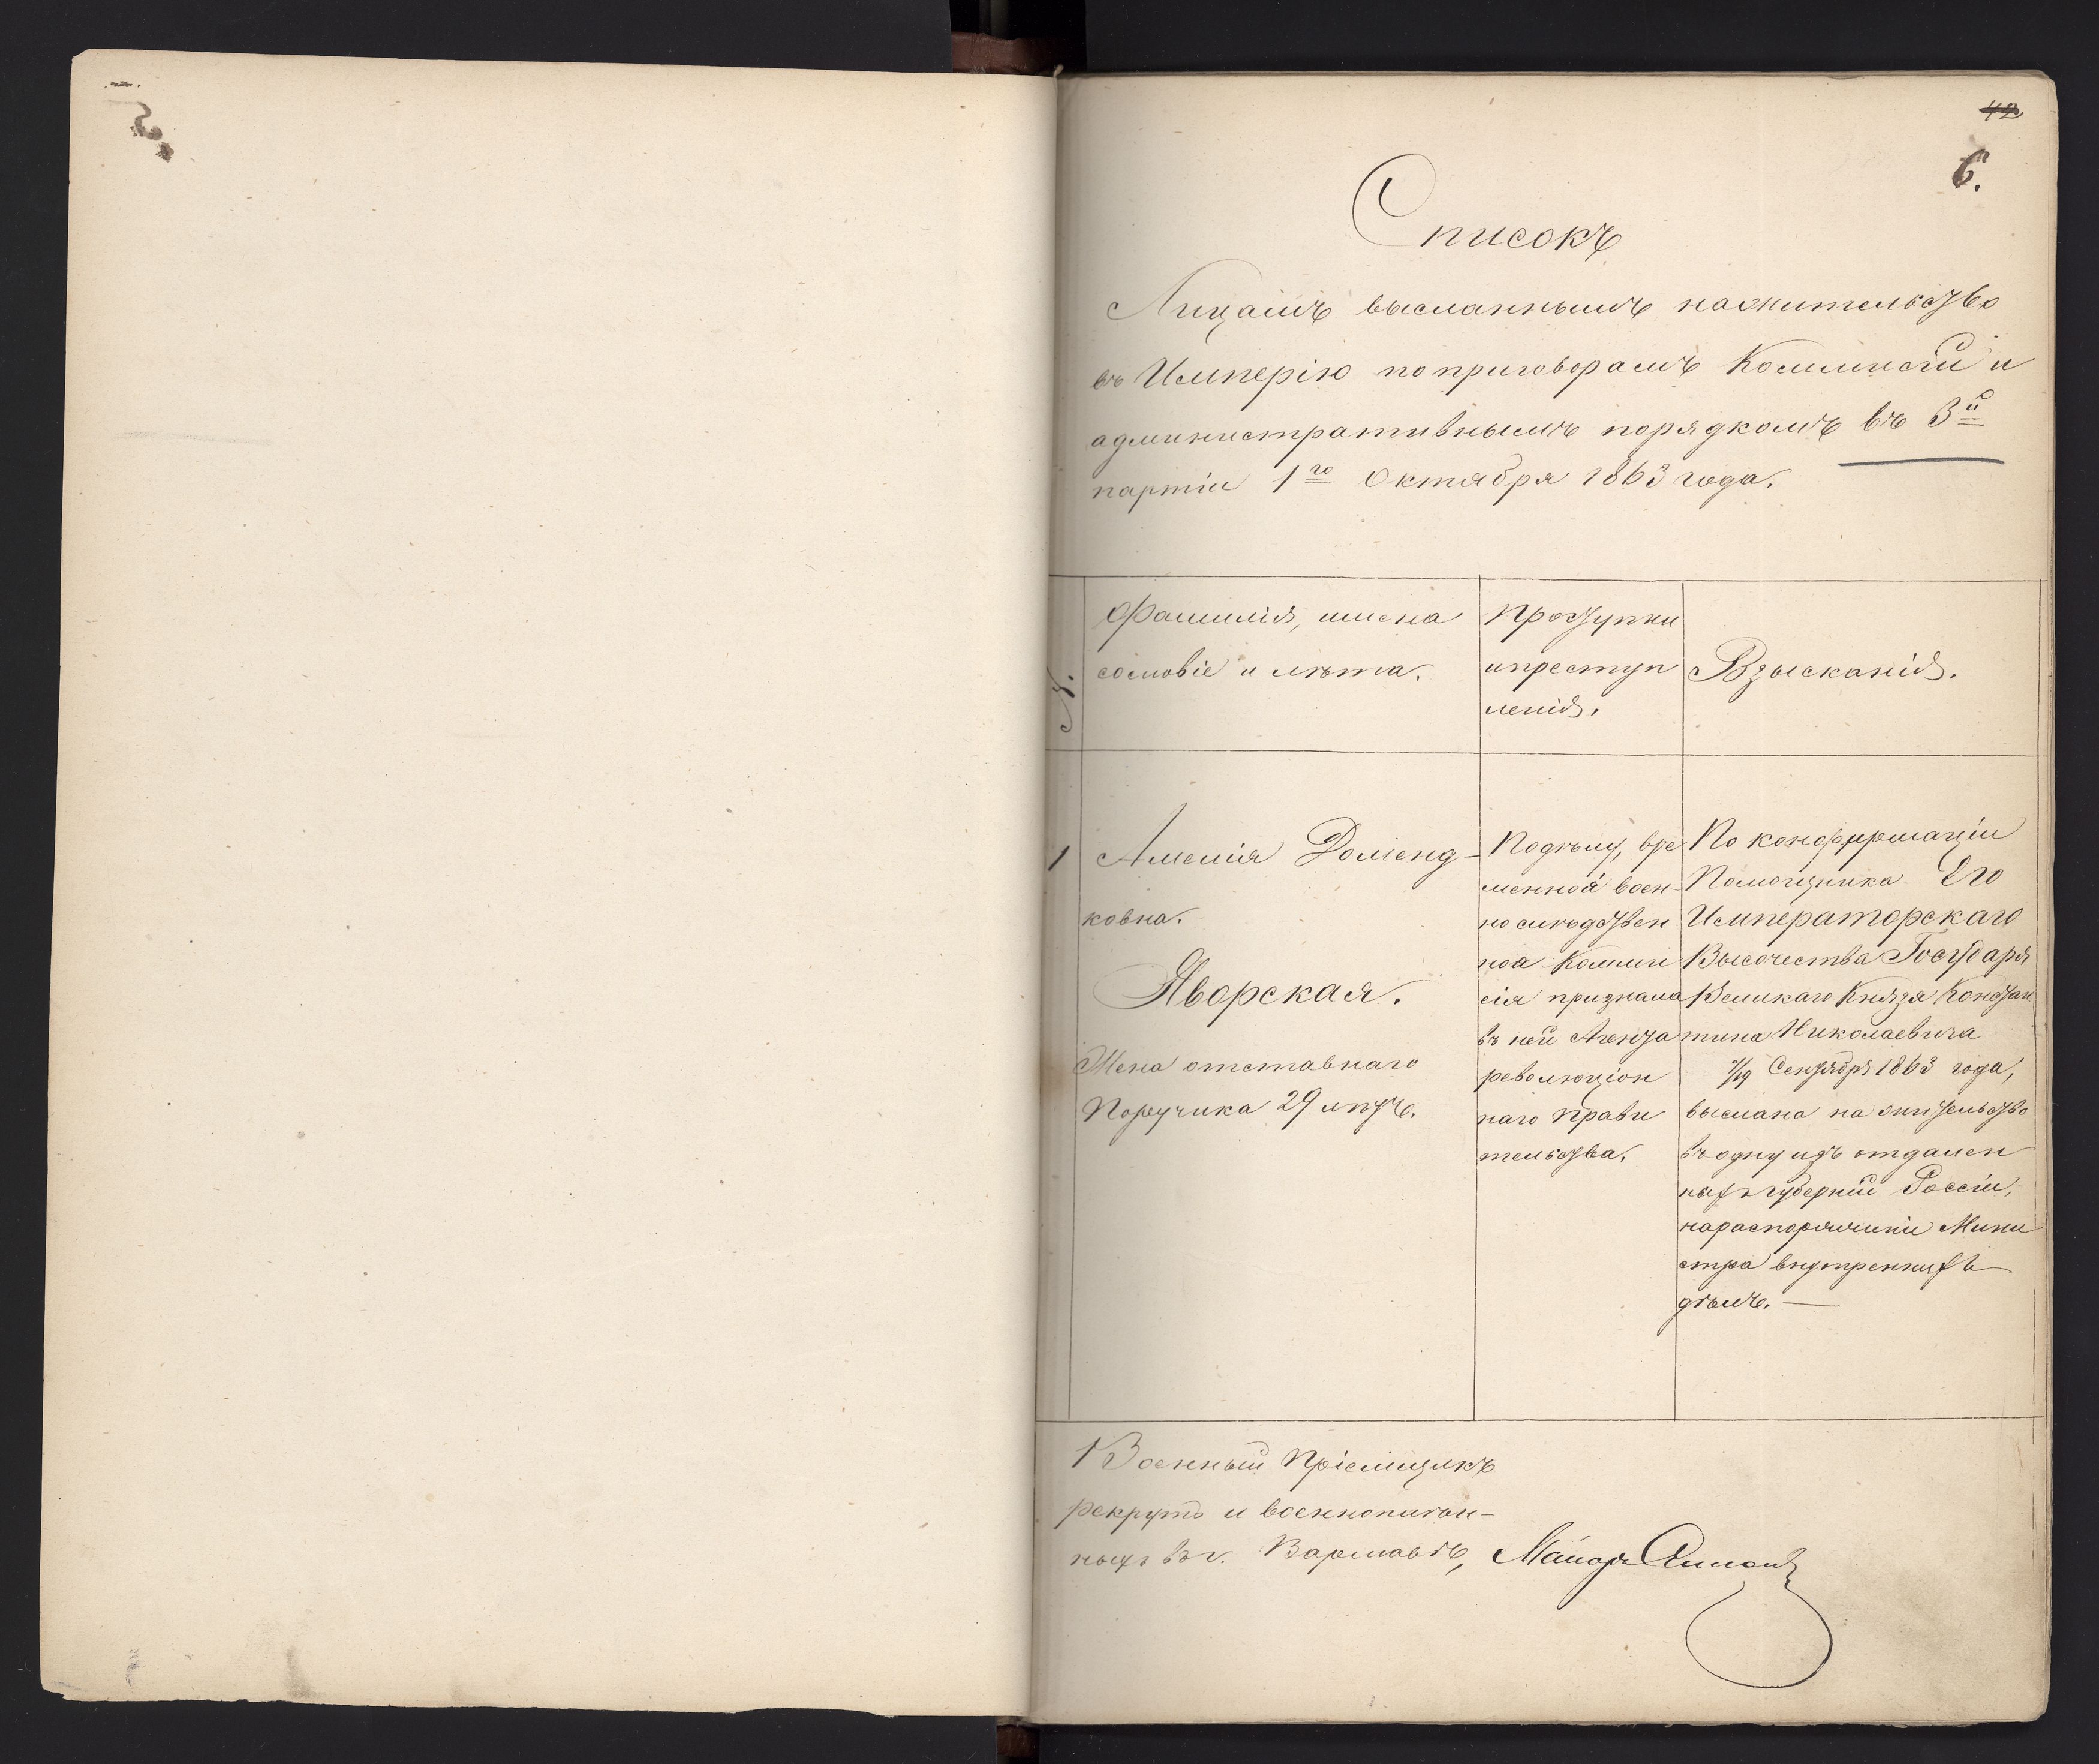 42
6.
Списокъ
Лицамъ высланнымъ на жительство
въ Имперію по приговорамъ Коммисіи и
административнымъ порядкомъ въ 3й
партіи 1го Октября 1863 года.
№.
Фамилія, имена
сословіе и лѣта.
Проступки
и преступ
ленія.
Взысканія.
1
Амелія Доленд-
ковна.
Яворская.
Жена отставнаго
Поручика 29 лѣтъ.
По дѣлу, вре
менной воен-
но слѣдствен
ная Коммис
сія признала
въ ней Агента
революціон
наго прави
тельства.
По конфирмаціи
Помощника Его
Императорскаго
Высочества Государя
Великаго Князя Констан
тина Николаевича
7/19 Сентября 1863 года,
выслана на жительство
въ одну изъ отдален
ныхъ губерній Россіи,
на распоряженіе Мини
стра внутреннихъ
дѣлъ. —
Военный Пріемщикъ
рекрутъ и военноплѣн-
ныхъ въ г. Варшавѣ, Маіоръ